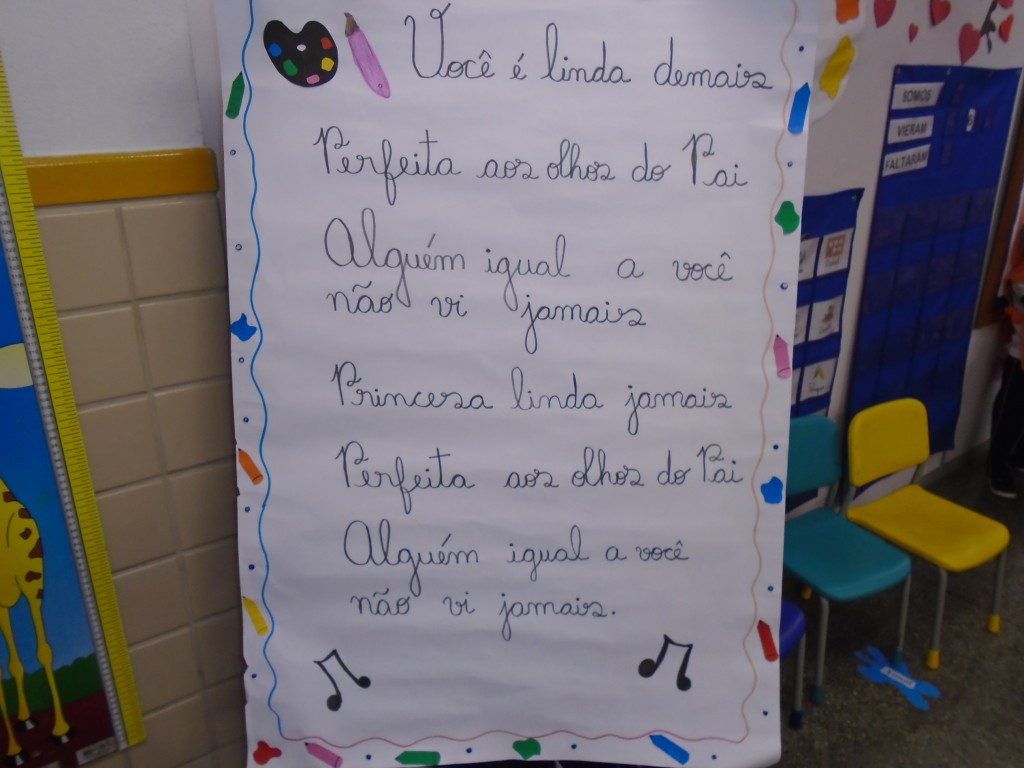 Você é linda demais
Perfeita aos olhos do Pai
Alguém igual a você
não vi jamais
Princesa linda jamais
Perfeita aos olhos do Pai
Alguém igual a você
não vi jamais.
SOMOS
VIERAM
FALTARAM